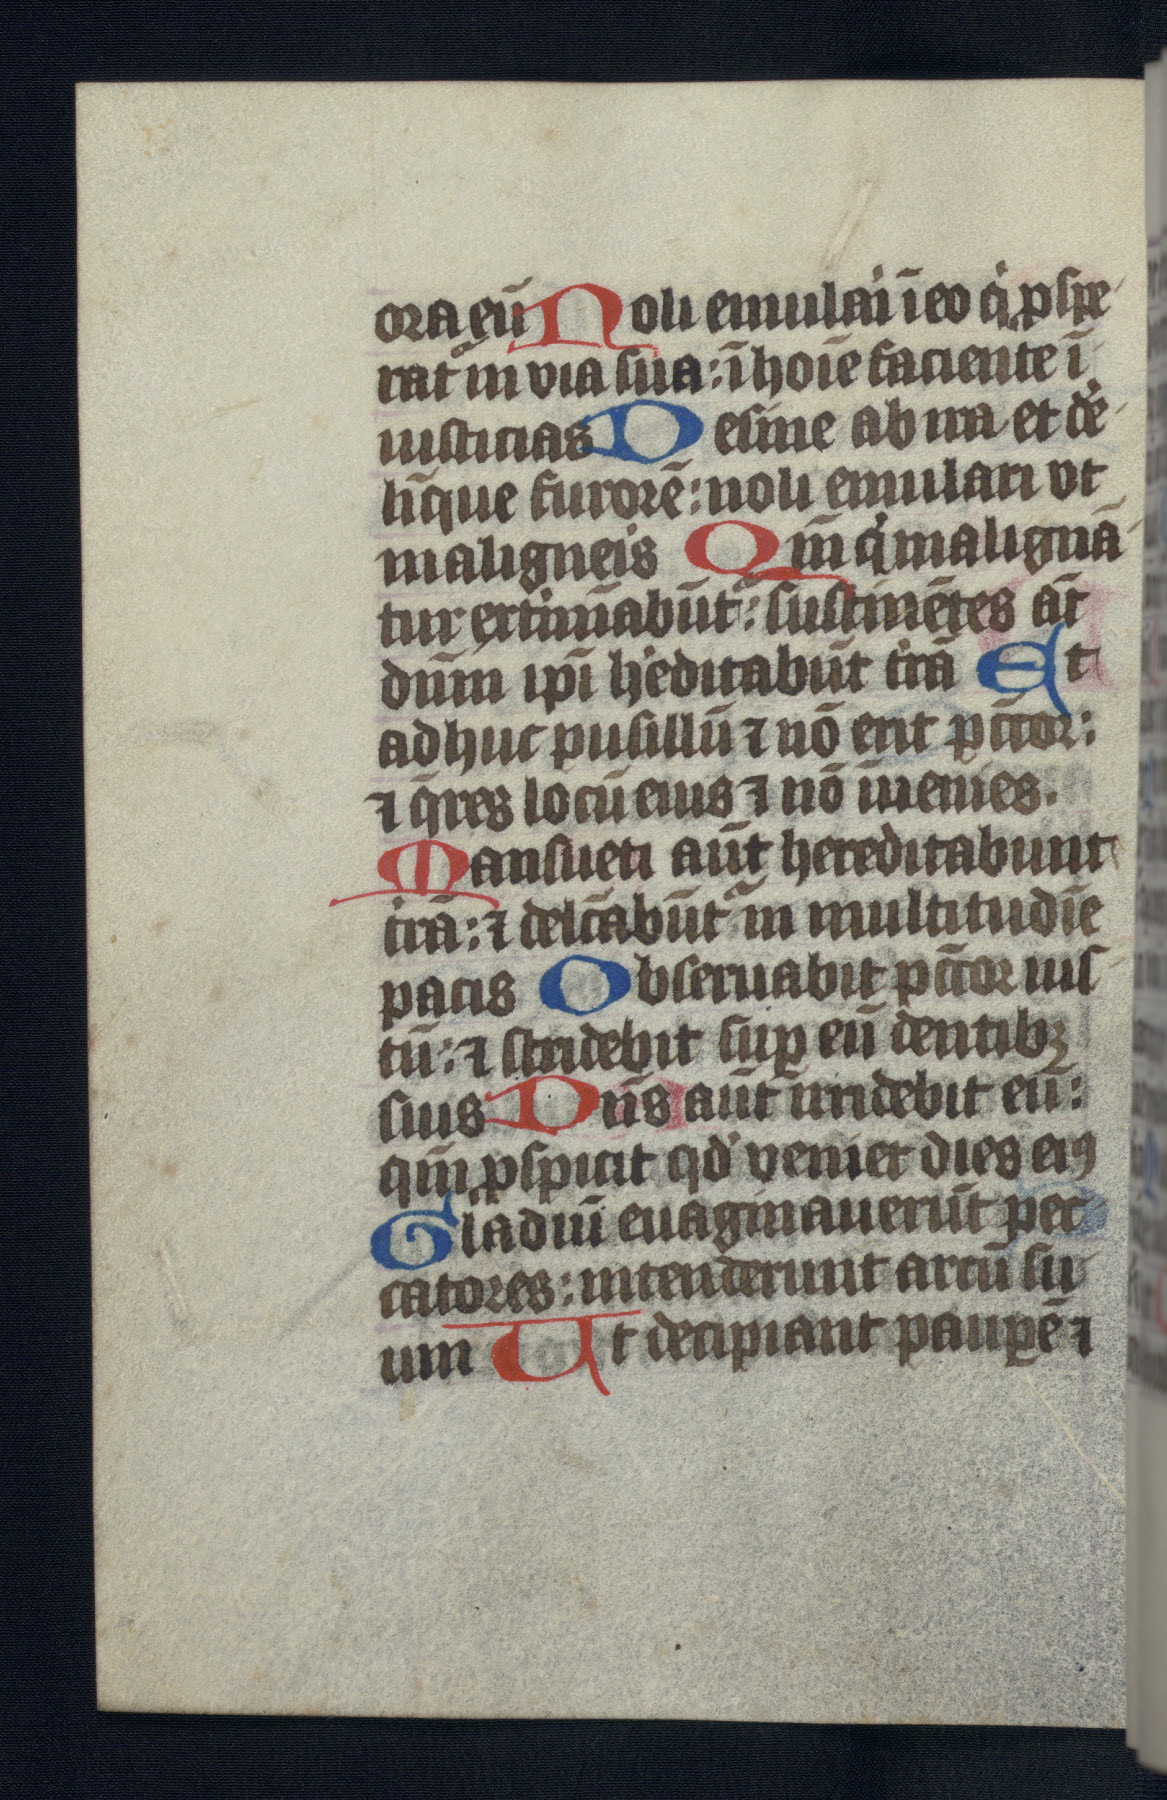 ora eū Noli emulai ī eo q̇ ꝓspe
rat᷑ in via sua: ī hoīe faciente ī
iusticias Desine ab ira et de
līque furorē: noli emulari vt
maligneis Qm̄ q̇ malignā
tur extīnabūt᷑: sustinētes aūt
dūm ipī hēditabūt t̄rā Et
adhuc pusillū ⁊ nō erit pc̄cor:
⁊ q̄res locū eius ⁊ nō īuenies.
Mansueti aūt hereditabunt
t̄rā: ⁊ delc̄abūt᷑ in multitudīe
pacis Obseruabit pc̄cor ius
tū: ⁊ stridebit suꝑ eū dentibꝫ
suis Dn̄s aūt irridebit eū:
qm̄ ꝓspicit qd' veniet dies eiꝰ
Gladiū euaginauerūt pec
catores: intenderunt arcū su
um Ut decipiant pauꝑē ⁊